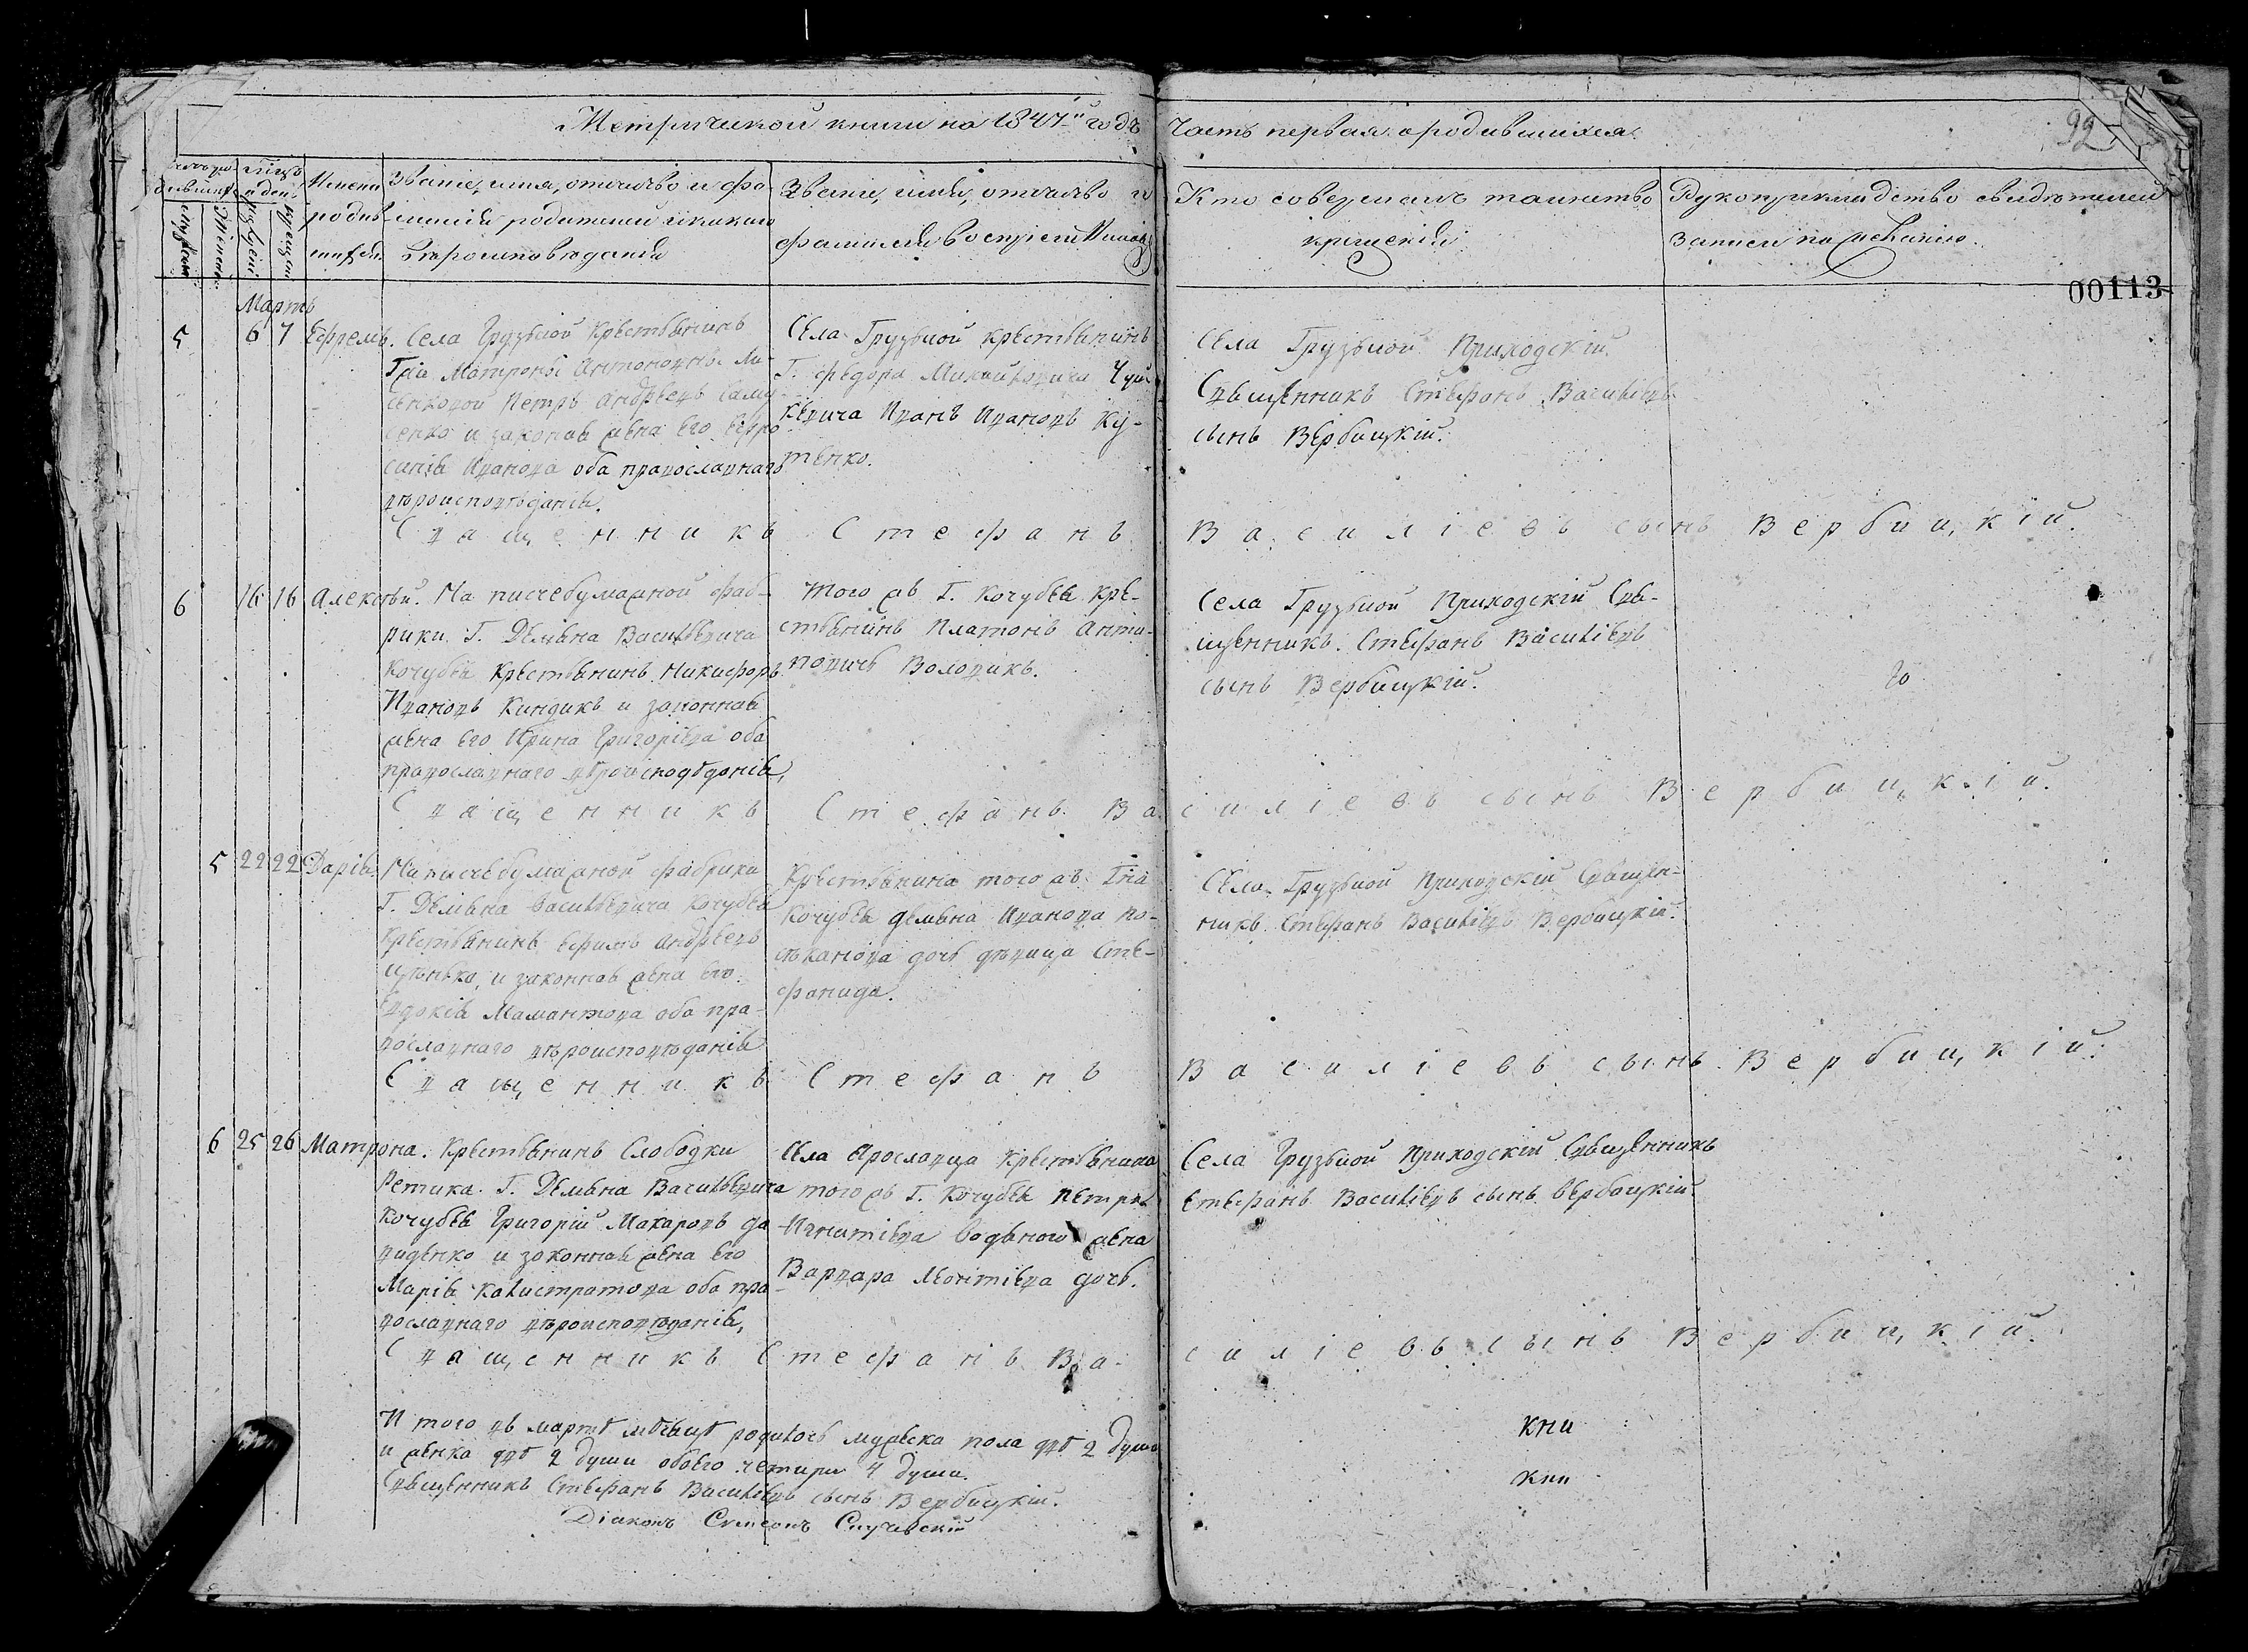 Метрической книги на 1847й годъ
Часть первая о родившихся.
92
Имена родившихся
Званіе, имя, отчество и фамилія родителей и какого вѣроисповѣданія
Званіе, имя, отчество и фамилія воспріемниковъ
Кто совершалъ таинство крещенія
Рукоприкладство свидѣтелей записи по желанію.
00113
Мартъ
5
6 7 Ефремъ.
Села Грузкой Крестьянинъ
Гжи Матроны Антоновны Ли-
Петръ Андреевъ
и законая жена его Евфро
синія Иванова оба православнаго
вѣроисповѣданія.
Села Грузкой крестьянинъ
Г. Федора Михайловича
Иванъ Ивановъ Ку-
тенко.
Села Грузкой Приходскій
Священникъ Стефанъ Василіевъ
сынъ Вербицкій.
Священникъ Стефанъ Василіевъ сынъ Вербицкій.
6
16 16 Алексѣй.
На писчебумажной фаб-
рики Г. Деміяна Василіевича
Кочубея Крестьянинъ Никифоръ
Ивановъ Киндикъ и законная
жена его Ирина Григоріева оба
православнаго вѣроисповѣданія,
того жъ Г. Кочубея Кре-
стьянинъ Платонъ Анти-
повичъ Воловикъ.
Села Грузкой Приходскій Свя-
щенникъ Стефанъ Василіевъ
сынъ Вербицкій.
го
Священникъ Стефанъ Василіевъ сынъ Вербицкій.
5 22 22 Дарія.
На писчебумажной фабрики
Г. Деміяна Василіевича Кочубея
Крестьянинъ Ефимъ Андреевъ
и законная жена его
Евдокія Мамантова оба пра-
вославнаго вѣроисповѣданія
Крестьянина того жъ Гна
Кочубея Демьяна Иванова
дочь дѣвица Сте-
фанида.
Села Грузкой Приходскій Священ-
никъ Стефанъ Василіевъ Вербицкій.
Священникъ Стефанъ Василіевъ сынъ Вербицкій.
6 25 26 Матрона.
Крестьянинъ Слободки
Ретика Г. Деміяна Василіевича
Кочубея Григорій Макаровъ Да
виденко и законная жена его
Марія Калистратова оба пра
вославнаго вѣроисповѣданія,
Села Ярославца Крестьянина
того жъ Г. Кочубея Петра
Игнатіева Водяного жена
Варвара Леонтіева дочь.
Села Грузкой Приходскій Священникъ
Стефанъ Василіевъ сынъ Вербицкій.
Священникъ Стефанъ Василіевъ сынъ Вербицкій.
И того въ мартѣ мѣсяцѣ родилось мужеска пола двѣ 2 души
и женка двѣ 2 души обоего четыри 4 души.
Священникъ Стефанъ Василіевъ сынъ Вербицкій.
Діаконъ Симеонъ
кни
кни